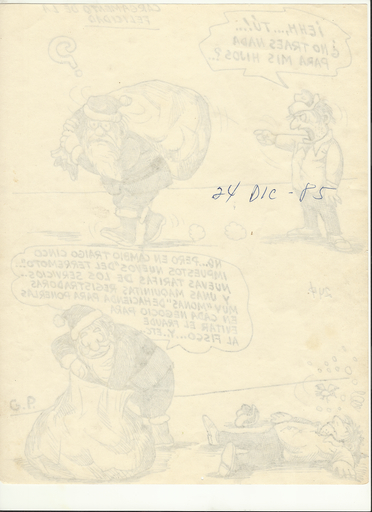 ¡EHH,... TÚ!...
¿NO TRAES NADA
PARA MIS HIJOS?
24 DIC - 85
NO... PERO EN CAMBIO TRAIGO CINCO
IMPUESTOS NUEVOS "DEL TERREMOTO"...
NUEVAS TARIFAS DE LOS SERVICIOS...
Y UNAS MAQUINITAS REGISTRADORAS
MUY DE HACIENDA PARA PONERLAS
EN CADA NEGOCIO PARA
EVITAR EL FRAUDE
AL FISCO... Y ETC...